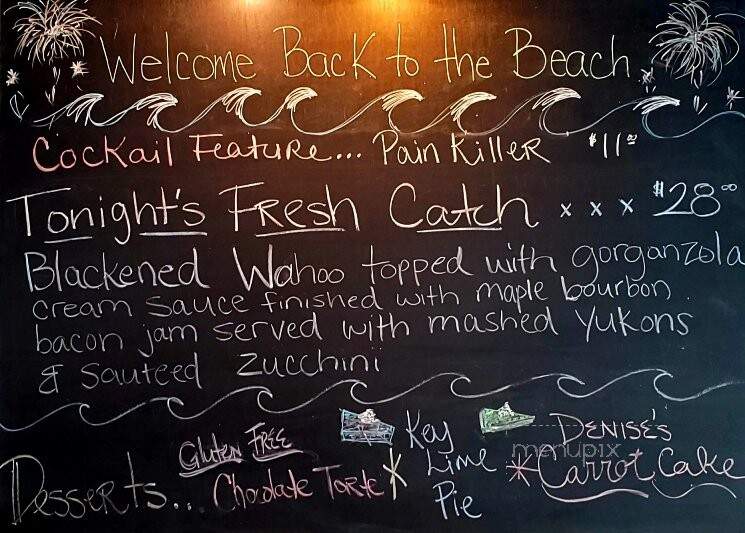 Welcome Back to the Beach
Cockail Feature... Pain Killer $11.00
Tonight's Fresh Catch x x x $28.00
Blackened Wahoo topped with gorganzola
cream sauce finished with maple bourbon
bacon jam served with mashed Yukons
& Sauteed Zucchini
Desserts... Gluten Free
Chocolate Torte
* Key
Lime
Pie
* Denise's
Carrot Cake
menupix